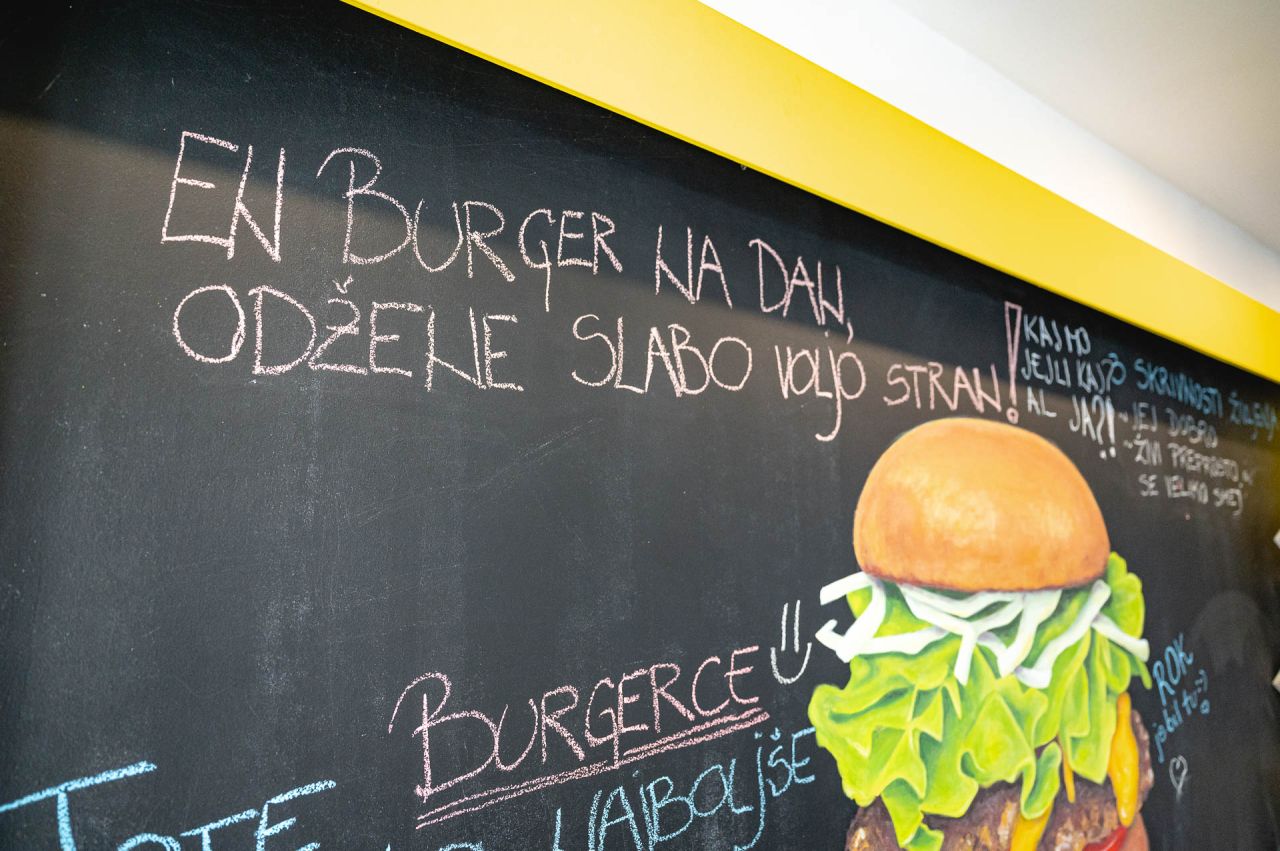 EN BURGER NA DAN,
ODŽENE SLABO VOLJO STRAN!
KAJ MO
JEJLI KAJ?
AL JA?!
SKRIVNOSTI ŽIVLJENJA
~ JEJ DOBRO
~ ŽIVI PREPROSTO
SE VELIKO SMEJ
BURGERCE
NAJBOLJŠE
TOTE
ROK
je bil tu :)